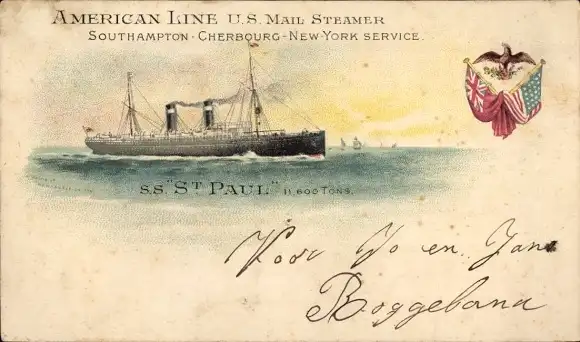 AMERICAN LINE U.S. MAIL STEAMER
SOUTHAMPTON - CHERBOURG - NEW-YORK SERVICE.
S.S. "ST PAUL" 11,600 TONS.
Voor Jo en Jan
Boggelana